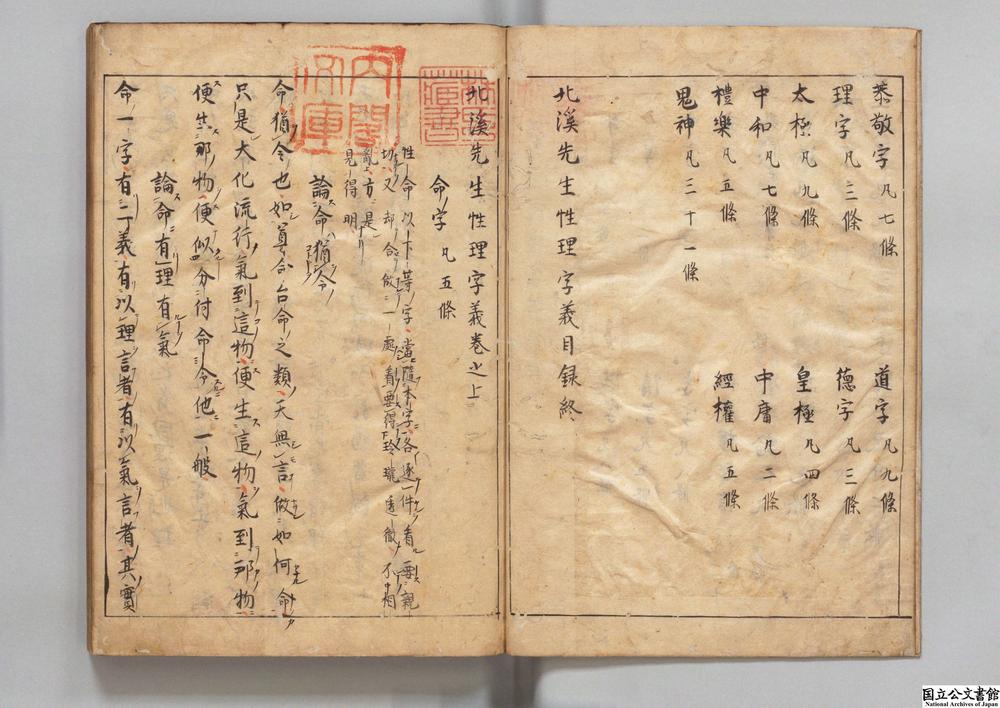 恭敬字 凡七條 道字 凡九條
理字 凡三條 德字 凡三條
太極 凡九條 皇極 凡四條
中和 凡七條 中庸 凡二條
禮樂 凡五條 經權 凡五條
鬼神 凡三十一條
北溪先生性理字義目録終
北溪先生性理字義卷之上
命字 凡五條
性命以下等字當隨本字各逐一件看要親
切又却合做一處看要得玲瓏透徹不相
亂方是
見得明
論命猶令
命猶令也如尊命台命之類天無言做如何命
只是大化流行氣到這物便生這物氣到那物
便生那物便似分付命令他一般
論命有理有氣
命一字有二義有以理言者有以氣言者其實
内閣
文庫
国立公文書館
National Archives of Japan